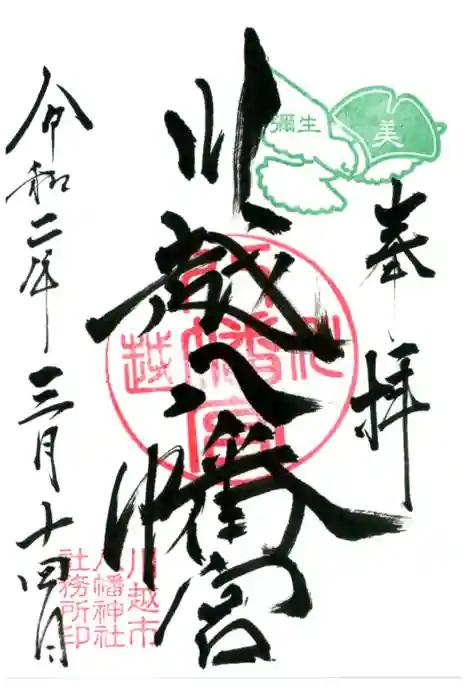 奉拝
彌生
美
川越八幡宮
川越
八幡宮
令和二年三月十四日
川越市
八幡神社
社務所印